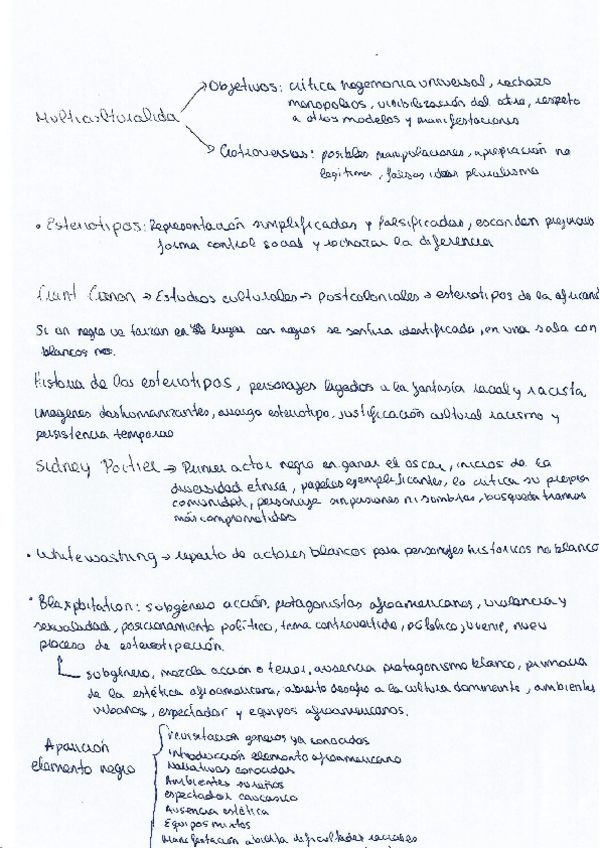 Objetivos: critica hegemonia universal, rechazo
monopolios, visibilización del otro, respeto
Multiculturalida
a otros modelos y manifestaciones
Controversias: posibles manipulaciones, apropiación no
legitima, falsas idea pluralismo
• Estereotipos: Representación simplificadas y falsificadas, esconden prejuicios
forma control social y rechazar la diferencia
→ Estudios culturales → postcoloniales → estereotipos de la african
Si un negro ve tarzan en lugar con negros se sentira identificado, en una sala con
blancos no.
Historia de los estereotipos, personajes ligados a la fantasía racial y racista,
imagenes deshumanizantes, arraigo estereotipo, justificación cultural racismo y
persistencia temporal
Sidney Poitier → Primer actor negro en ganar el oscar, inicios de la
diversidad etnica, papeles ejemplificantes, le critica su propia
comunidad, personaje sin pasiones ni sombras, busqueda tramas
más comprometidas
• Whitewashing → reparto de actores blancos para personajes historicos no blanco
• Blaxploitation: subgénero acción, protagonistas afroamericanos, violencia y
sexualidad, posicionamiento politico, tema controvertido, público juvenil, nuevo
proceso de estereotipación.
subgénero, mezcla acción o terror, ausencia protagonismo blanco, primacia
de la estética afroamericana, abierto desafio a la cultura dominante, ambientes
urbanos, espectador y equipos afroamericanos.
Aparición
elemento negro
revisitación generos ya conocidos
introducción elemento afroamericano
Narrativas conocidas
Ambientes sureños
espectador caucasico
Ausencia estética
Equipos mixtos
Manifestación abierta dificultades raciales